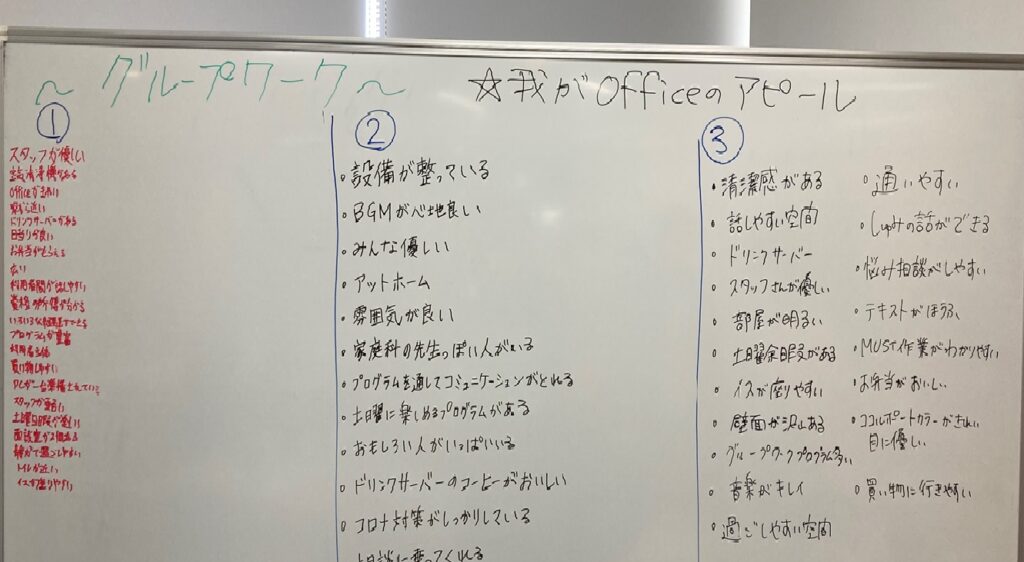 ～グループワーク～
☆我がOfficeのアピール
①
スタッフが優しい
空気清浄機がある
Officeがきれい
駅から近い
ドリンクサーバーがある
日当りが良い
お弁当がもらえる
広い
利用者間が話しやすい
資格
いろいろ
プログラムが豊富
利用者
買い物しやすい
PCが一台準備
スタッフが
土曜日
面談室が2個ある
静かで
トイレが近い
イスが座りやすい
②
・設備が整っている
・BGMが心地良い
・みんな優しい
・アットホーム
・雰囲気が良い
・家庭科の先生っぽい人がいる
・プログラムを通してコミュニケーションがとれる
・土曜に楽しめるプログラムがある
・おもしろい人がいっぱいいる
・ドリンクサーバーのコーヒーがおいしい
・コロナ対策がしっかりしている
相談に乗ってくれる
③
・清潔感がある
・話しやすい空間
・ドリンクサーバー
・スタッフさんが優しい
・部屋が明るい
・土曜余暇がある
・イスが座りやすい
・壁面が沢山ある
・グループワークプログラム多い
・音楽がキレイ
・過ごしやすい空間
・通いやすい
・しゅみの話ができる
・悩み相談がしやすい
・テキストがほうふ
・MUST作業がわかりやすい
・お弁当がおいしい
・ココルポートカラーがきれい
目に優しい
・買い物に行きやすい